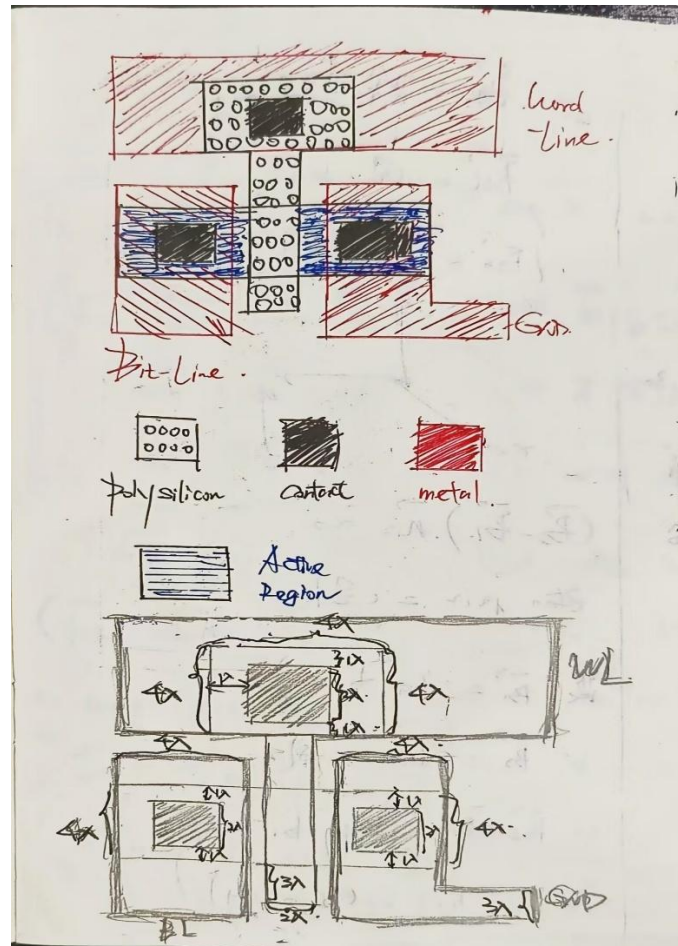 Word
-Line.
GND
Bit-Line.
polysilicon
contact
metal.
Active
Region
4λ
WL
1λ
4λ
1λ
2λ
4λ
1λ
4λ
4λ
1λ
1λ
4λ
2λ
2λ
4λ
1λ
1λ
3λ
2λ
3λ
GND
BL